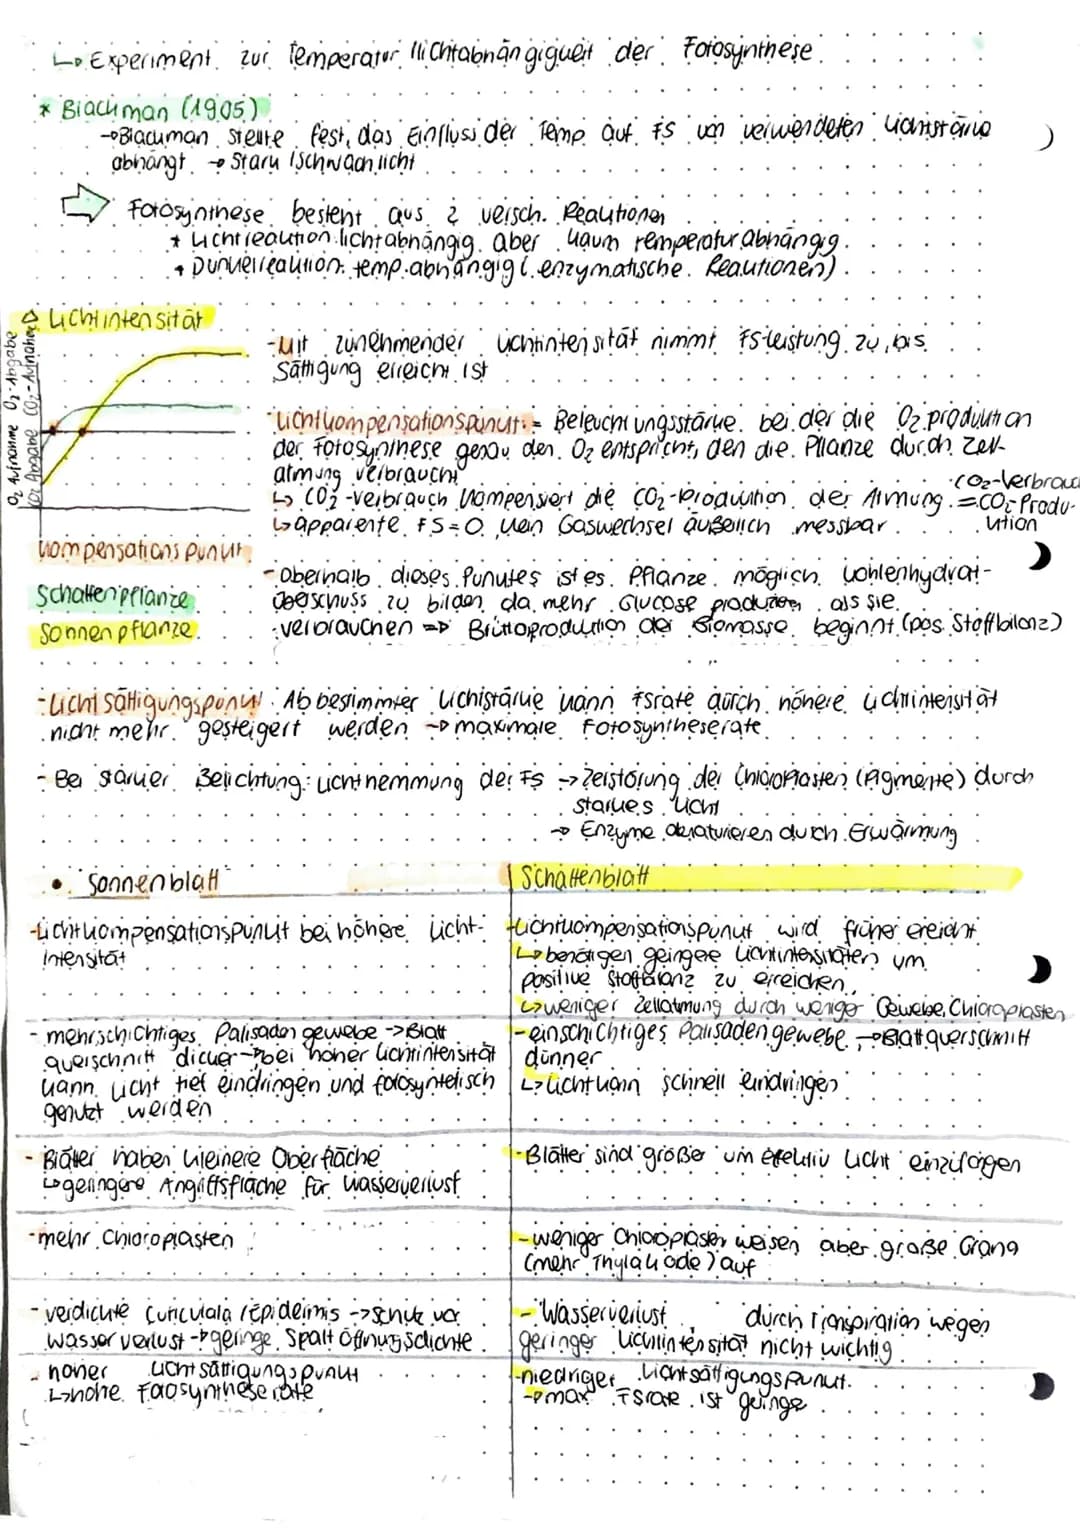 ↳ Experiment zur Temperatur / lichtabhängigkeit der Fotosynthese
* Blackman (1905)
→ Blackman stellte fest, das Einfluss der Temp auf FS von verwendeten Lichtstärke
abhängt → Stark / schwachlicht
⇨ Fotosynthese besteht aus 2 versch. Reaktionen
* Lichtreaktion: lichtabhängig aber kaum temperaturabhängig
* Dunkelreaktion: temp. abhängig (enzymatische Reaktionen)
Lichtintensität
O2 Aufnahme O2-Abgabe
CO2 Abgabe CO2-Aufnahme
- Mit zunehmender Lichtintensität nimmt FS-leistung zu, bis
Sättigung erreicht ist
- Lichtkompensationspunkt: = Beleuchtungsstärke bei der die O2 produktion
der Fotosynthese genau den O2 entspricht, den die Pflanze durch Zell-
atmung verbraucht
↳ CO2-verbrauch kompensiert die CO2-Produktion der Atmung
CO2-Verbrauch
= CO2-Produ-
ktion
↳ apparente FS = 0, kein Gaswechsel äußerlich messbar
Kompensationspunkt
Schattenpflanze
Sonnenpflanze
- Oberhalb dieses Punktes ist es Pflanze möglich Kohlenhydrat-
überschuss zu bilden, da mehr Glucose produziert als sie
verbrauchen => Bruttoproduktion der Biomasse beginnt (pos. Stoffbilanz)
- Lichtsättigungspunkt: Ab bestimmter Lichtstärke kann FSrate durch höhere Lichtintensität
nicht mehr gesteigert werden → maximale Fotosyntheserate
- Bei starker Belichtung: Lichthemmung der FS → Zerstörung der Chloroplasten (Pigmente) durch
starkes Licht
→ Enzyme denaturieren durch Erwärmung
• Sonnenblatt
Schattenblatt
- Lichtkompensationspunkt bei höhere Licht-
intensität
- Lichtkompensationspunkt wird früher ereicht
↳ benötigen geingere Lichtintensitäten um
positive Stoffbilanz zu erreichen
↳ weniger Zellatmung durch weniger Gewebe, Chloroplasten
- mehrschichtiges Palisadengewebe → Blatt
querschnitt dicker → bei hoher Lichtintensität
kann Licht tief eindringen und fotosyntetisch
genutzt werden
- einschichtiges Palisadengewebe → Blattquerschnitt
dünner
↳ Licht kann schnell eindringen
- Blätter haben kleinere Oberfläche
↳ geringere Angriffsfläche für Wasserverlust
- Blätter sind größer um efektiv Licht einzufangen
- mehr Chloroplasten
- weniger Chloroplasten weisen aber große Grana
(mehr Thylakoide) auf
- verdickte Cuticula / Epidermis → Schutz vor
Wasserverlust → geringe Spaltöffnungsdichte
- Wasserverlust durch Transpiration wegen
geringer Lichtintensität nicht wichtig
- hoher Lichtsättigungspunkt
↳ hohe Fotosyntheserate
- niedriger Lichtsättigungspunkt
→ max FSrate ist geringe